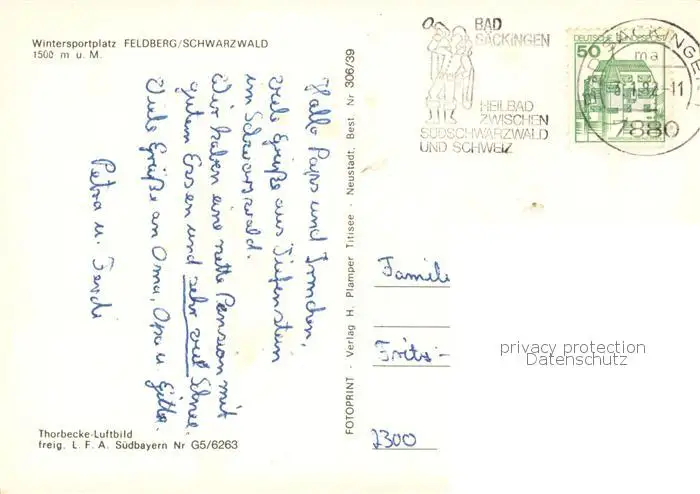 Wintersportplatz FELDBERG/SCHWARZWALD
1500 m ü. M.
Hallo Paps und Irmchen,
viele Grüße aus Tiefenstein
im Schwarzwald.
Wir haben eine nette Pension mit
gutem Essen und sehr viel Schnee.
Viele Grüße an Oma, Opa u.
Petra u. Ferdi
Thorbecke-Luftbild
freig. L. F. A. Südbayern Nr G5/6263
FOTOPRINT - Verlag H. Plamper Titisee - Neustadt, Best. Nr 306/39
BAD
SÄCKINGEN
HEILBAD
ZWISCHEN
SÜDSCHWARZWALD
UND SCHWEIZ
DEUTSCHE BUNDESPOST
50
SÄCKINGEN
ma
-11
7880
Familie
Fritz
privacy protection
Datenschutz